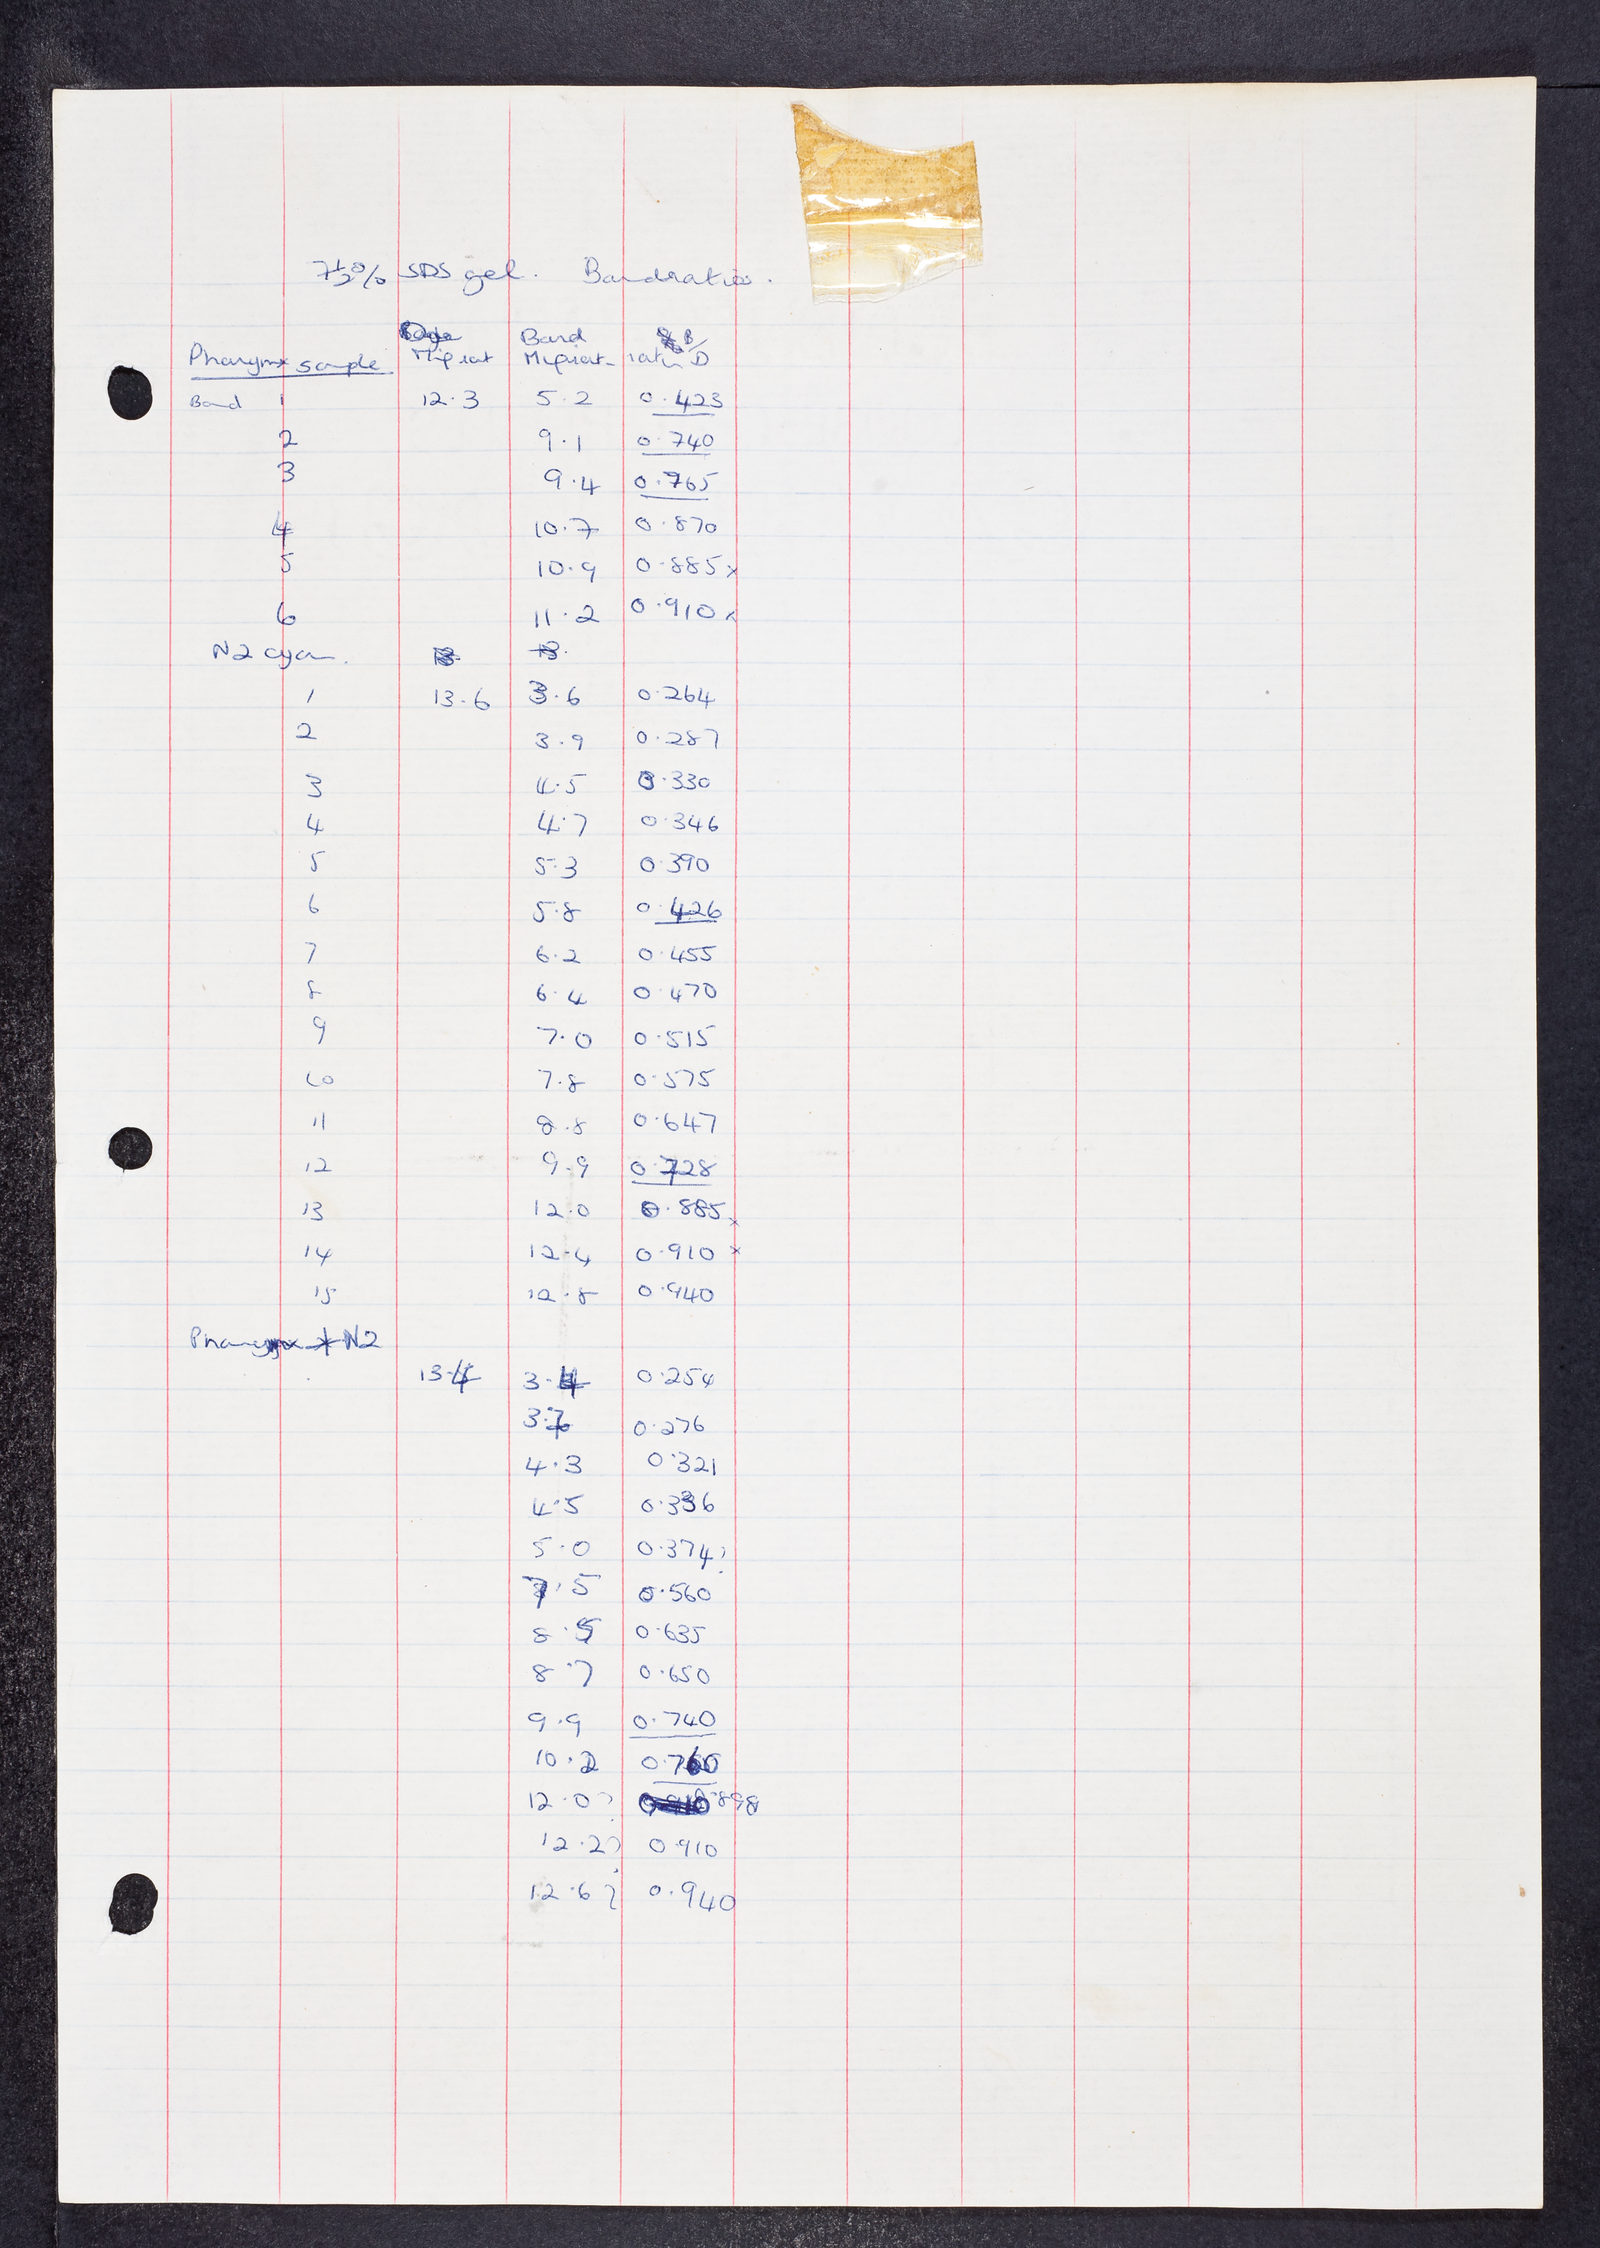 7½% SDS gel. Bandratios.
Dye Band B/
Pharynx sample Migrat Migrat- ratio D
Band 1 12.3 5.2 0.423
2 9.1 0.740
3 9.4 0.765
4 10.7 0.870
5 10.9 0.885 x
6 11.2 0.910 x
N2 cyan.
1 13.6 3.6 0.264
2 3.9 0.287
3 4.5 0.330
4 4.7 0.346
5 5.3 0.390
6 5.8 0.426
7 6.2 0.455
8 6.4 0.470
9 7.0 0.515
10 7.8 0.575
11 8.8 0.647
12 9.9 0.728
13 12.0 0.885 x
14 12.4 0.910 x
15 12.8 0.940
Pharynx + N2
13.4 3.4 0.254
3.7 0.276
4.3 0.321
4.5 0.336
5.0 0.374?
7.5 0.560
8.5 0.635
8.7 0.650
9.9 0.740
10.2 0.760
12.0? 0.898
12.2? 0.910
12.6? 0.940